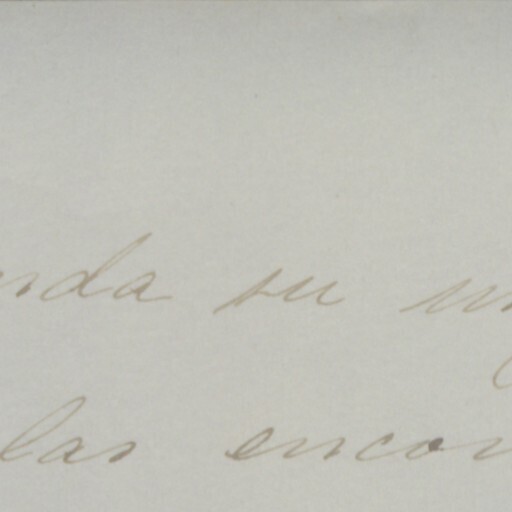 nda su
las encon